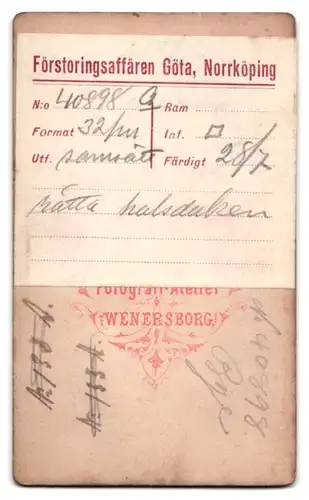 Förstoringsaffären Göta, Norrköping
N:o 40898 Ram
Format 32/ Inf.
Utf. samsätt Färdigt 28/7
rätta halsduken
Fotografi-Atelier
WENERSBORG
40898